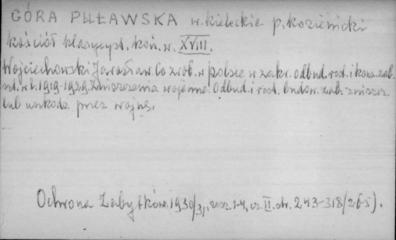 GÓRA PUŁAWSKA w. kieleckie p. kozienicki
kościół klasycyst. koń. w. XVIII.
Wojciechowski Jarosław. Co zrob. w polsce w zakr. odbud. rest. i kons. zab.
w l. 1919-1929. Zniszczenia wojenne. Odbud. i rest. budow. zab. zniszcz.
lub uszkodz. przez wojnę.
Ochrona Zabytków 1930/31, zesz. 1-4, cz. II. str. 243-318 /265).